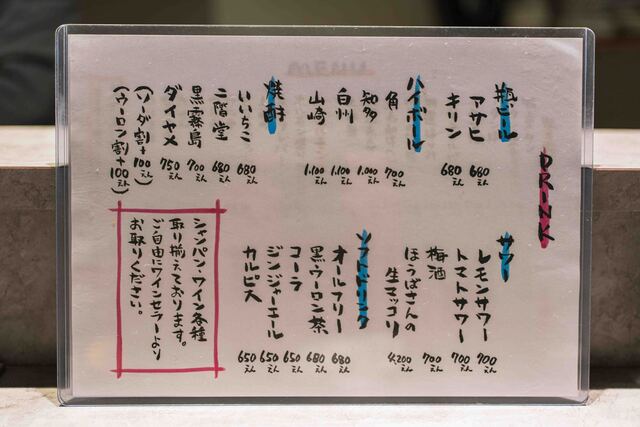 DRINK
瓶ビール
アサヒ 680えん
キリン 680えん
ハイボール
角 700えん
知多 1,000えん
白州 1,100えん
山崎 1,100えん
焼酎
いいちこ 680えん
二階堂 680えん
黒霧島 700えん
ダイヤメ 750えん
(ソーダ割+100えん)
(ウーロン割+100えん)
サワー
レモンサワー 700えん
トマトサワー 700えん
梅酒 700えん
ほうばさんの
生マッコリ 4,200えん
ソフトドリンク
オールフリー 680えん
黒・ウーロン茶 680えん
コーラ 650えん
ジンジャーエール 650えん
カルピス 650えん
シャンパン・ワイン各種
取り揃えております。
ご自由にワインセラーより
お取りください。